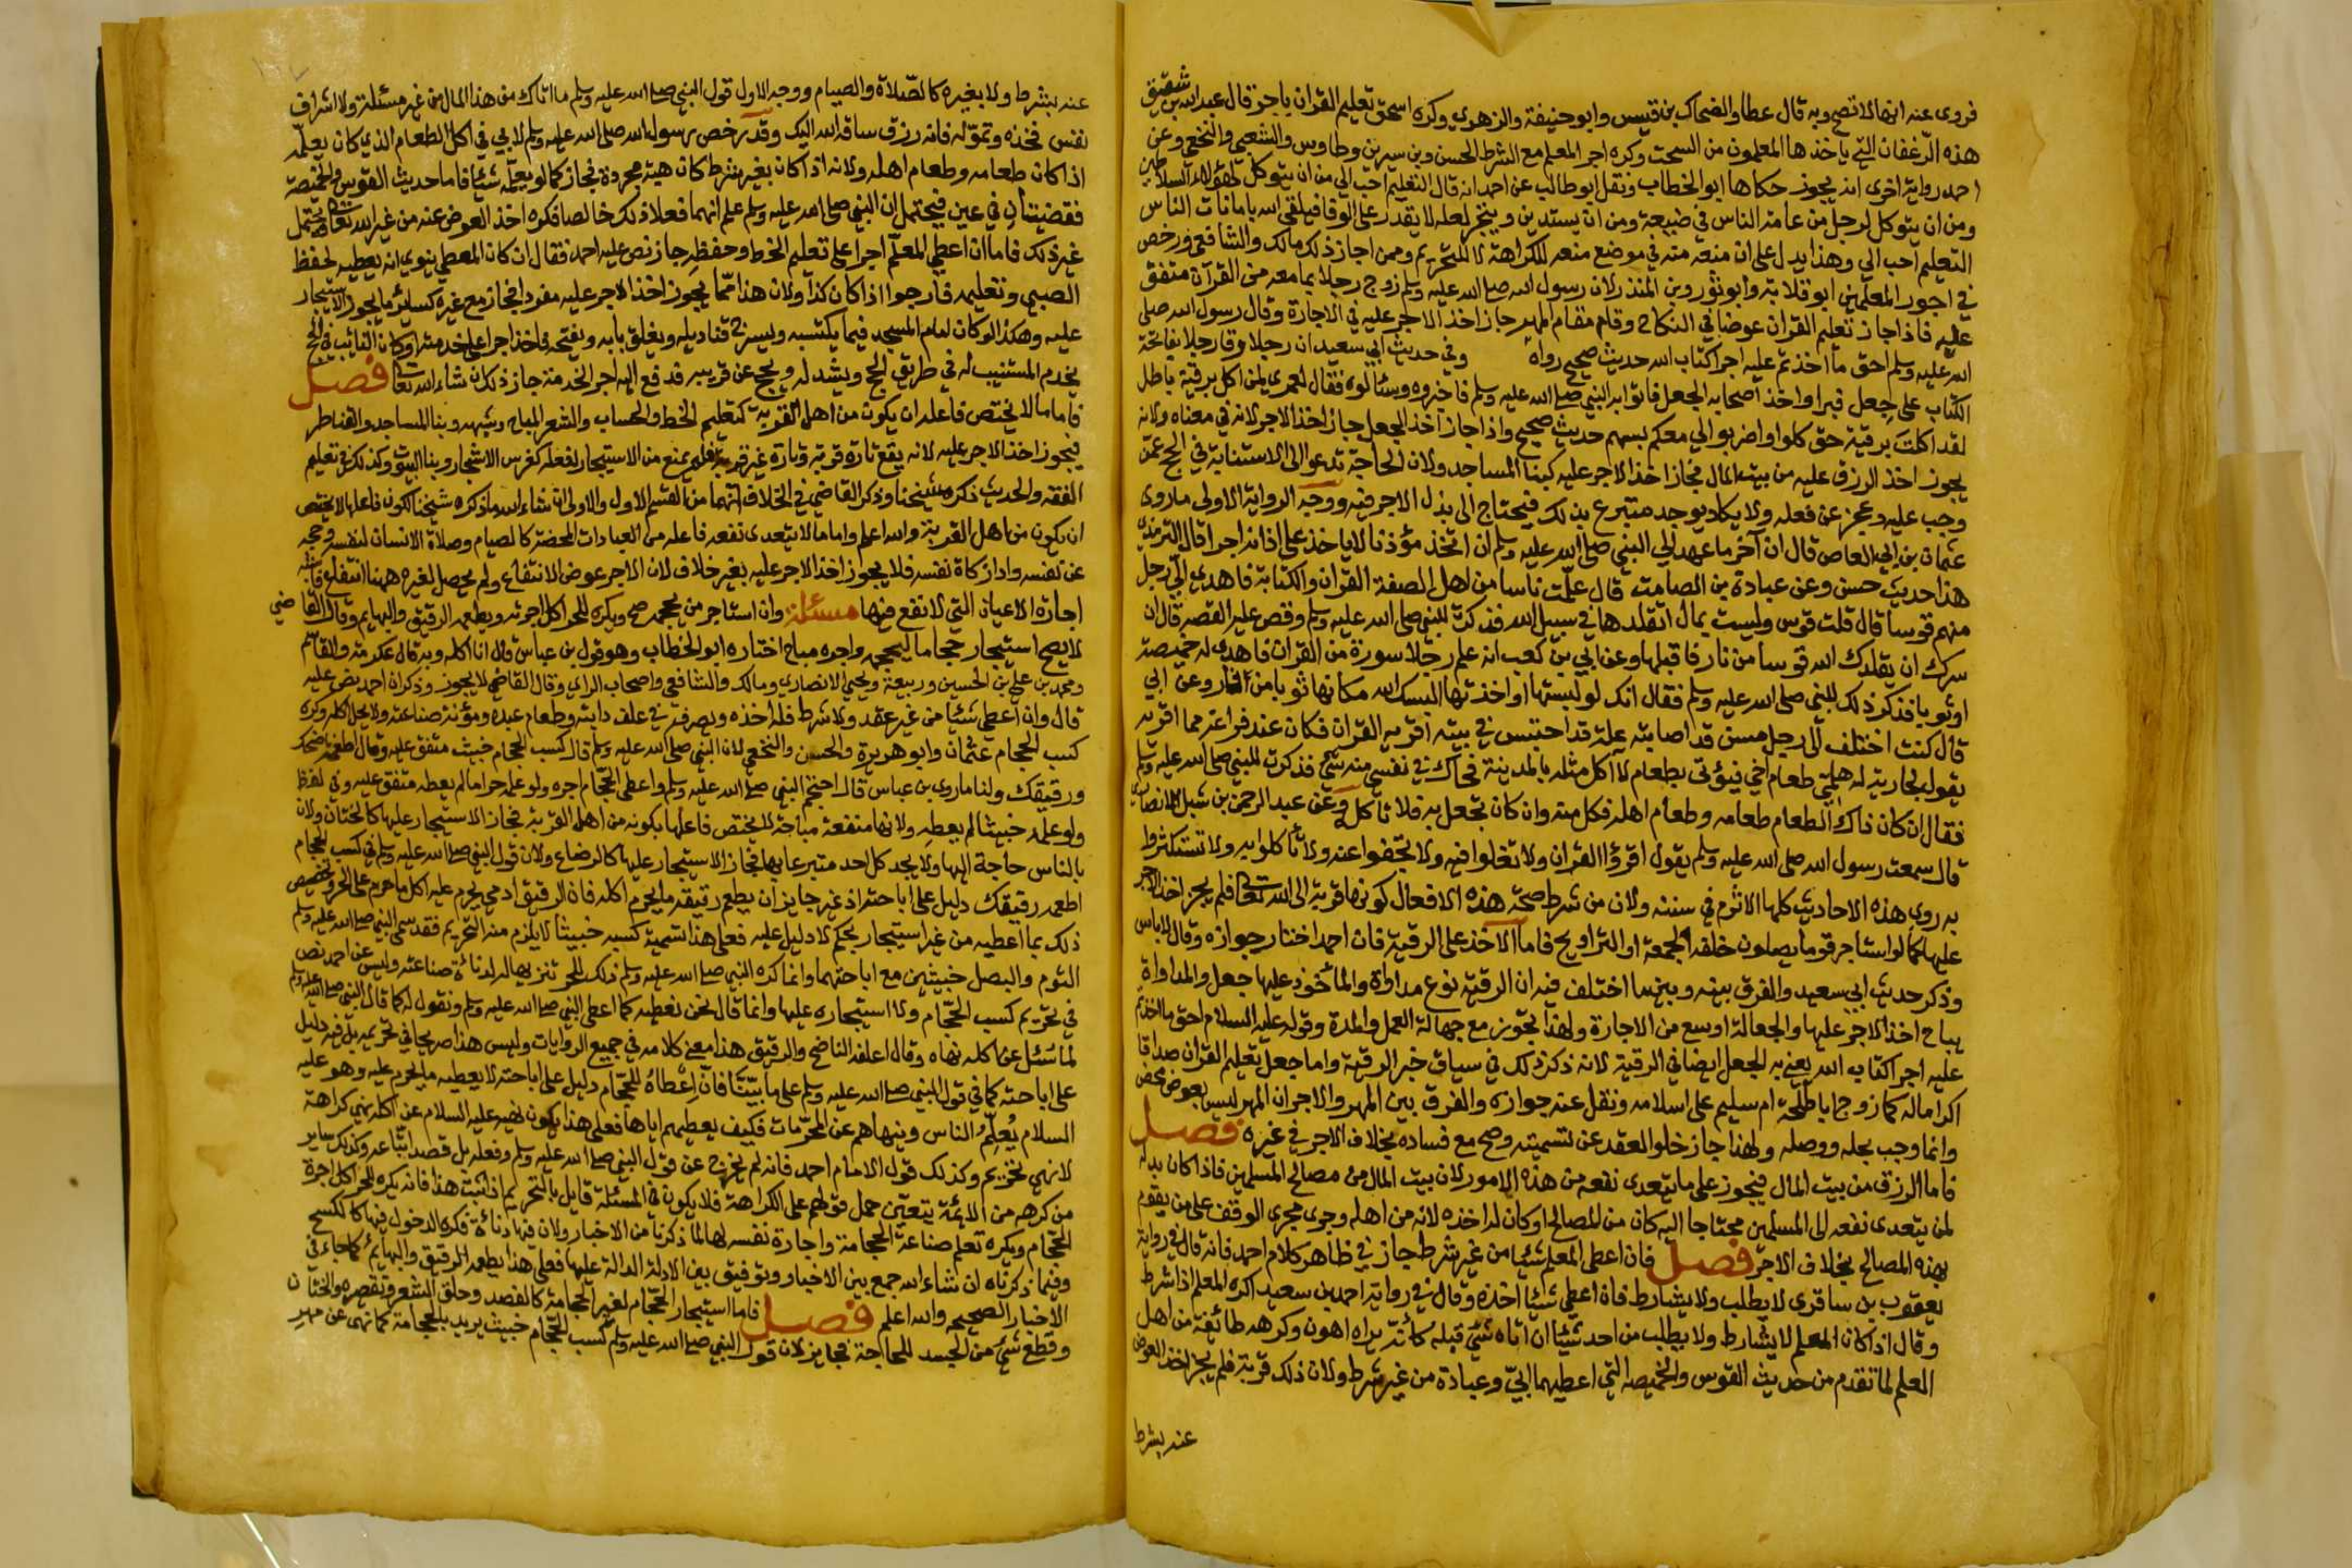 فروي عنه انها لا تصح وبه قال عطا والضحاك بن قيس وابو حنيفة والزهري وكره اسحق تعليم القران باجر قال عبد الله بن شقيق
هذه الرغفان التي ياخذها المعلمون من السحت وكره اجر المعلم مع الشرط الحسن وبن سيرين وطاوس والشعبي والنخعي وعن
احمد رواية اخرى انه يجوز حكاها ابو الخطاب ونقل ابو طالب عن احمد انه قال التعليم احب الي من ان يتوكل لهؤلاء السلاطين
ومن ان يتوكل لرجل من عامة الناس في ضيعة ومن ان يستدين ويتجر لعله لا يقدر على الوفا فيلقى الله بامانات الناس
التعليم احب الي وهذا يدل على ان منعه منه في موضع منعه للكراهة لا للتحريم وممن اجاز ذلك مالك والشافعي ورخص
في اجور المعلمين ابو قلابة وابو ثور وبن المنذر لان رسول الله صلى الله عليه وسلم زوج رجلا بما معه من القرآن متفق
عليه فاذا جاز تعليم القران عوضا في النكاح وقام مقام المهر جاز اخذ الاجر عليه في الاجارة وقال رسول الله صلى
الله عليه وسلم احق ما اخذتم عليه اجرا كتاب الله حديث صحيح رواه وفي حديث ابي سعيد ان رجلا رقا رجلا بفاتحة
الكتاب على جعل فبرا واخذ اصحابه الجعل فاتوا به النبي صلى الله عليه وسلم فاخبروه وسئالوه فقال لعمري لمن اكل برقية باطل
لقد اكلت برقية حق كلوا واضربوا لي معكم بسهم حديث صحيح واذا جاز اخذ الجعل جاز اخذ الاجر لانه في معناه ولانه
يجوز اخذ الرزق عليه من بيت المال فجاز اخذ الاجر عليه كبنا المساجد ولان الحاجة تدعو الى الاستنابة في الحج عمن
وجب عليه وعجز عن فعله ولا يكاد يوجد متبرع بذلك فيحتاج الى بذل الاجر فيه ووجه الرواية الاولى ما روى
عثمان بن ابي العاص قال ان آخر ما عهد الي النبي صلى الله عليه وسلم ان اتخذ مؤذنا لا ياخذ على اذانه اجرا قال الترمذي
هذا حديث حسن وعن عبادة بن الصامت قال علمت ناسا من اهل الصفة القران والكتابة فاهدى الي رجل
منهم قوسا قال قلت قوس وليست بمال اتقلدها في سبيل الله فذكرت للنبي صلى الله عليه وسلم وقص عليه القصه قال ان
سرك ان يقلدك الله قوسا من نار فاقبلها وعن ابي بن كعب انه علم رجلا سورة من القران فاهدى له خميصة
او ثوبا فذكر ذلك للنبي صلى الله عليه وسلم فقال انك لو لبستها او اخذتها البسك الله مكانها ثوبا من النار وعن ابي
قال كنت اختلف الى رجل مسن قد اصابته علة قد احتبس في بيته اقريه القران فكان عند فراغه مما اقريه
يقول لجارية له هلمي طعام اخي فيؤتى بطعام لا آكل مثله بالمدينة فحاك في نفسي منه شي فذكرت للنبي صلى الله عليه وسلم
فقال ان كان ذاك الطعام طعامه وطعام اهله فكل منه وان كان يجعل به فلا تاكل وعن عبد الرحمن بن شبل الانصاري
قال سمعت رسول الله صلى الله عليه وسلم يقول اقرؤا القران ولا تغلوا فيه ولا تجفوا عنه ولا تأكلوا به ولا تستكثروا
به روى هذه الاحاديث كلها الاثرم في سننه ولان من شرط صحة هذه الافعال كونها قربة الى الله تعالى فلم يجز اخذ الاجر
عليها كما لو استاجر قوما يصلون خلفه الجمعة او التراويح فاما الاخذ على الرقية فان احمد اختار جوازه وقال لا باس
وذكر حديث ابي سعيد والفرق بينه وبين ما اختلف فيه ان الرقية نوع مداواة والماخوذ عليها جعل والمداواة
يباح اخذ الاجر عليها والجعالة اوسع من الاجارة ولهذا تجوز مع جهالة العمل والمدة وقوله عليه السلام احق ما اخذتم
عليه اجرا كتاب الله يعني به الجعل ايضا في الرقية لانه ذكر ذلك في سياق خبر الرقية واما جعل تعليم القران صداقا
اكراما له كما زوج ابا طلحة ام سليم على اسلامه ونقل عنه جوازه والفرق بين المهر والاجر ان المهر ليس بعوض محض
وانما وجب نحله ووصله ولهذا جاز خلو العقد عن تسميته وصح مع فساده بخلاف الاجر في غيره فصل
فاما الرزق من بيت المال فيجوز على ما يتعدى نفعه من هذه الامور لان بيت المال من مصالح المسلمين فاذا كان بذله
لمن يتعدى نفعه الى المسلمين محتاجا اليه كان من المصالح وكان له اخذه لانه من اهله وجرى مجرى الوقف على من يقوم
بهذه المصالح بخلاف الاجر فصل فان اعطى المعلم شئيا من غير شرط جاز في ظاهر كلام احمد فانه قال في رواية
يعقوب بن ساقري لا يطلب ولا يشارط فان اعطي شئيا اخذه وقال في رواية احمد بن سعيد اكره المعلم اذا شرط
وقال اذا كان المعلم لا يشارط ولا يطلب من احد شئيا ان اتاه شئ قبله كأنه يراه اهون وكرهه طائفة من اهل
العلم لما تقدم من حديث القوس والخميصه التي اعطيهما ابي وعبادة من غير شرط ولان ذلك قربة فلم يجز اخذ العوض
عنه بشرط
عنه بشرط ولا بغيره كالصلاة والصيام ووجه الاول قول النبي صلى الله عليه وسلم ما اتاك من هذا المال من غير مسئلة ولا اشراف
نفس فخذه وتموله فانه رزق ساقه الله اليك وقد رخص رسول الله صلى الله عليه وسلم لابي في اكل الطعام الذي كان يعلمه
اذا كان طعامه وطعام اهله ولانه اذا كان بغير شرط كان هبة مجردة فجاز كما لو يعلمه شئيا فاما حديث القوس والخميصة
فقضيتان في عين فيحتمل ان النبي صلى الله عليه وسلم علم انهما فعلا ذلك خالصا فكره اخذ العوض عنه من غير الله تعالى ويحتمل
غير ذلك فاما ان اعطي المعلم اجرا على تعليم الخط وحفظه جاز نص عليه احمد فقال ان كان المعطي ينوي انه يعطيه لحفظ
الصبي وتعليمه فارجوا اذا كان كذا ولان هذا مما يجوز اخذ الاجر عليه مفردا فجاز مع غيره كسائر ما يجوز الاستيجار
عليه وهكذا لو كان امام المسجد فيما يكنسه ويسرج قناديله ويغلق بابه ويفتحه فاخذ اجرا على خدمته او كان النائب في الحج
يخدم المستنيب له في طريق الحج ويشد له ويحج عن قريبه فدفع اليه اجر الخدمة جاز ذلك ان شاء الله تعالى فصل
فاما ما لا يختص فاعله ان يكون من اهل القربة كتعليم الخط والحساب والشعر المباح وشبهه وبنا المساجد والقناطر
فيجوز اخذ الاجر عليه لانه يقع تارة قربة وتارة غير قربة فلم يمنع من الاستيجار لفعله كغرس الاشجار وبنا البيوت وكذلك في تعليم
الفقه والحديث ذكره شيخنا وذكر القاضي في الخلاف انهما من القسم الاول والاولى ان شاء الله ما ذكره شيخنا لكون فاعلها لا يختص
ان يكون من اهل القربة والله اعلم واما ما لا يتعدى نفعه فاعله من العبادات المحضة كالصيام وصلاة الانسان لنفسه وحجه
عن نفسه واداء زكاة نفسه فلا يجوز اخذ الاجر عليه بغير خلاف لان الاجر عوض الانتفاع ولم يحصل لغيره ههنا انتفاع فاشبه
اجارة الاعيان التي لا نفع فيها مسئلة وان استاجر من يحجمه صح ويكره للحر اكل اجرته ويطعمه الرقيق والبهايم وقال القاضي
لا يصح استيجار حجاما ليحجمه واجره مباح اختاره ابو الخطاب وهو قول بن عباس قال انا اكله وبه قال عكرمة والقاسم
ومحمد بن علي بن الحسين وربيعة ويحيى الانصاري ومالك والشافعي واصحاب الراي وقال القاضي لا يجوز وذكر ان احمد نص عليه
قال وان اعطي شئيا من غير عقد ولا شرط فله اخذه ويصرفه في علف دابته وطعام عبده ومؤنة صناعته ولا يحل اكله وكره
كسب الحجام عثمان وابو هريرة والحسن والنخعي لان النبي صلى الله عليه وسلم قال كسب الحجام خبيث متفق عليه وقال اطعمه ناضحك
ورقيقك ولنا ما روى بن عباس قال احتجم النبي صلى الله عليه وسلم واعطى الحجام اجره ولو علمه حراما لم يعطه متفق عليه وفي لفظ
ولو علمه خبيثا لم يعطه ولانها منفعة مباحة لا يختص فاعلها بكونه من اهل القربة فجاز الاستيجار عليها كالختان ولان
بالناس حاجة اليها ولا يجد كل احد متبرعا بها فجاز الاستيجار عليها كالرضاع ولان قول النبي صلى الله عليه وسلم في كسب الحجام
اطعمه رقيقك دليل على اباحته اذ غير جايز ان يطعم رقيقه ما يحرم اكله فان الرقيق ادمي يحرم عليه اكل ما حرم على الحر وتخصيص
ذلك بما اعطيه من غير استيجار تحكم لا دليل عليه فعلى هذا تسمية كسبه خبيثا لا يلزم منه التحريم فقد سمى النبي صلى الله عليه وسلم
الثوم والبصل خبيثين مع اباحتهما وانما كره النبي صلى الله عليه وسلم ذلك للحر تنزيها له لدناءة صناعته وليس عن احمد نص
في تحريم كسب الحجام ولا استيجاره عليها وانما قال نحن نعطيه كما اعطى النبي صلى الله عليه وسلم ونقول له كما قال النبي صلى الله عليه وسلم
لما سئل عن اكله نهاه وقال اعلفه الناضح والرقيق هذا معنى كلامه في جميع الروايات وليس هذا صريحا في تحريمه بل فيه دليل
على اباحته كما في قول النبي صلى الله عليه وسلم على ما بيّنّا فان اعطاه للحجام دليل على اباحته اذ لا يعطيه ما يحرم عليه وهو عليه
السلام يُعلّم الناس وينهاهم عن المحرمات فكيف يعطيهم اياها فعلى هذا يكون نهيه عليه السلام عن اكله نهي كراهة
لا نهي تحريم وكذلك قول الامام احمد فانه لم يخرج عن قول النبي صلى الله عليه وسلم وفعله بل قصد اتباعه وكذلك ساير
من كرهه من الائمة يتعين حمل قولهم على الكراهة فلا يكون في المسئلة قايل بالتحريم اذا ثبت هذا فانه يكره للحر اكل اجرة
الحجام ويكره تعلم صناعة الحجامة واجارة نفسه لها لما ذكرنا من الاخبار ولان فيها دناءة فكره الدخول فيها كالكسح
وفيما ذكرناه ان شاء الله جمع بين الاخبار وتوفيق بين الادلة الدالة عليها فعلى هذا يطعمه الرقيق والبهايم كما جاء في
الاخبار الصحيحه والله اعلم فصل فاما استيجار الحجام لغير الحجامة كالفصد وحلق الشعر وتقصيره والختان
وقطع شئ من الجسد للحاجة فجايز لان قول النبي صلى الله عليه وسلم كسب الحجام خبيث يريد بالحجامة كما نهى عن مهر